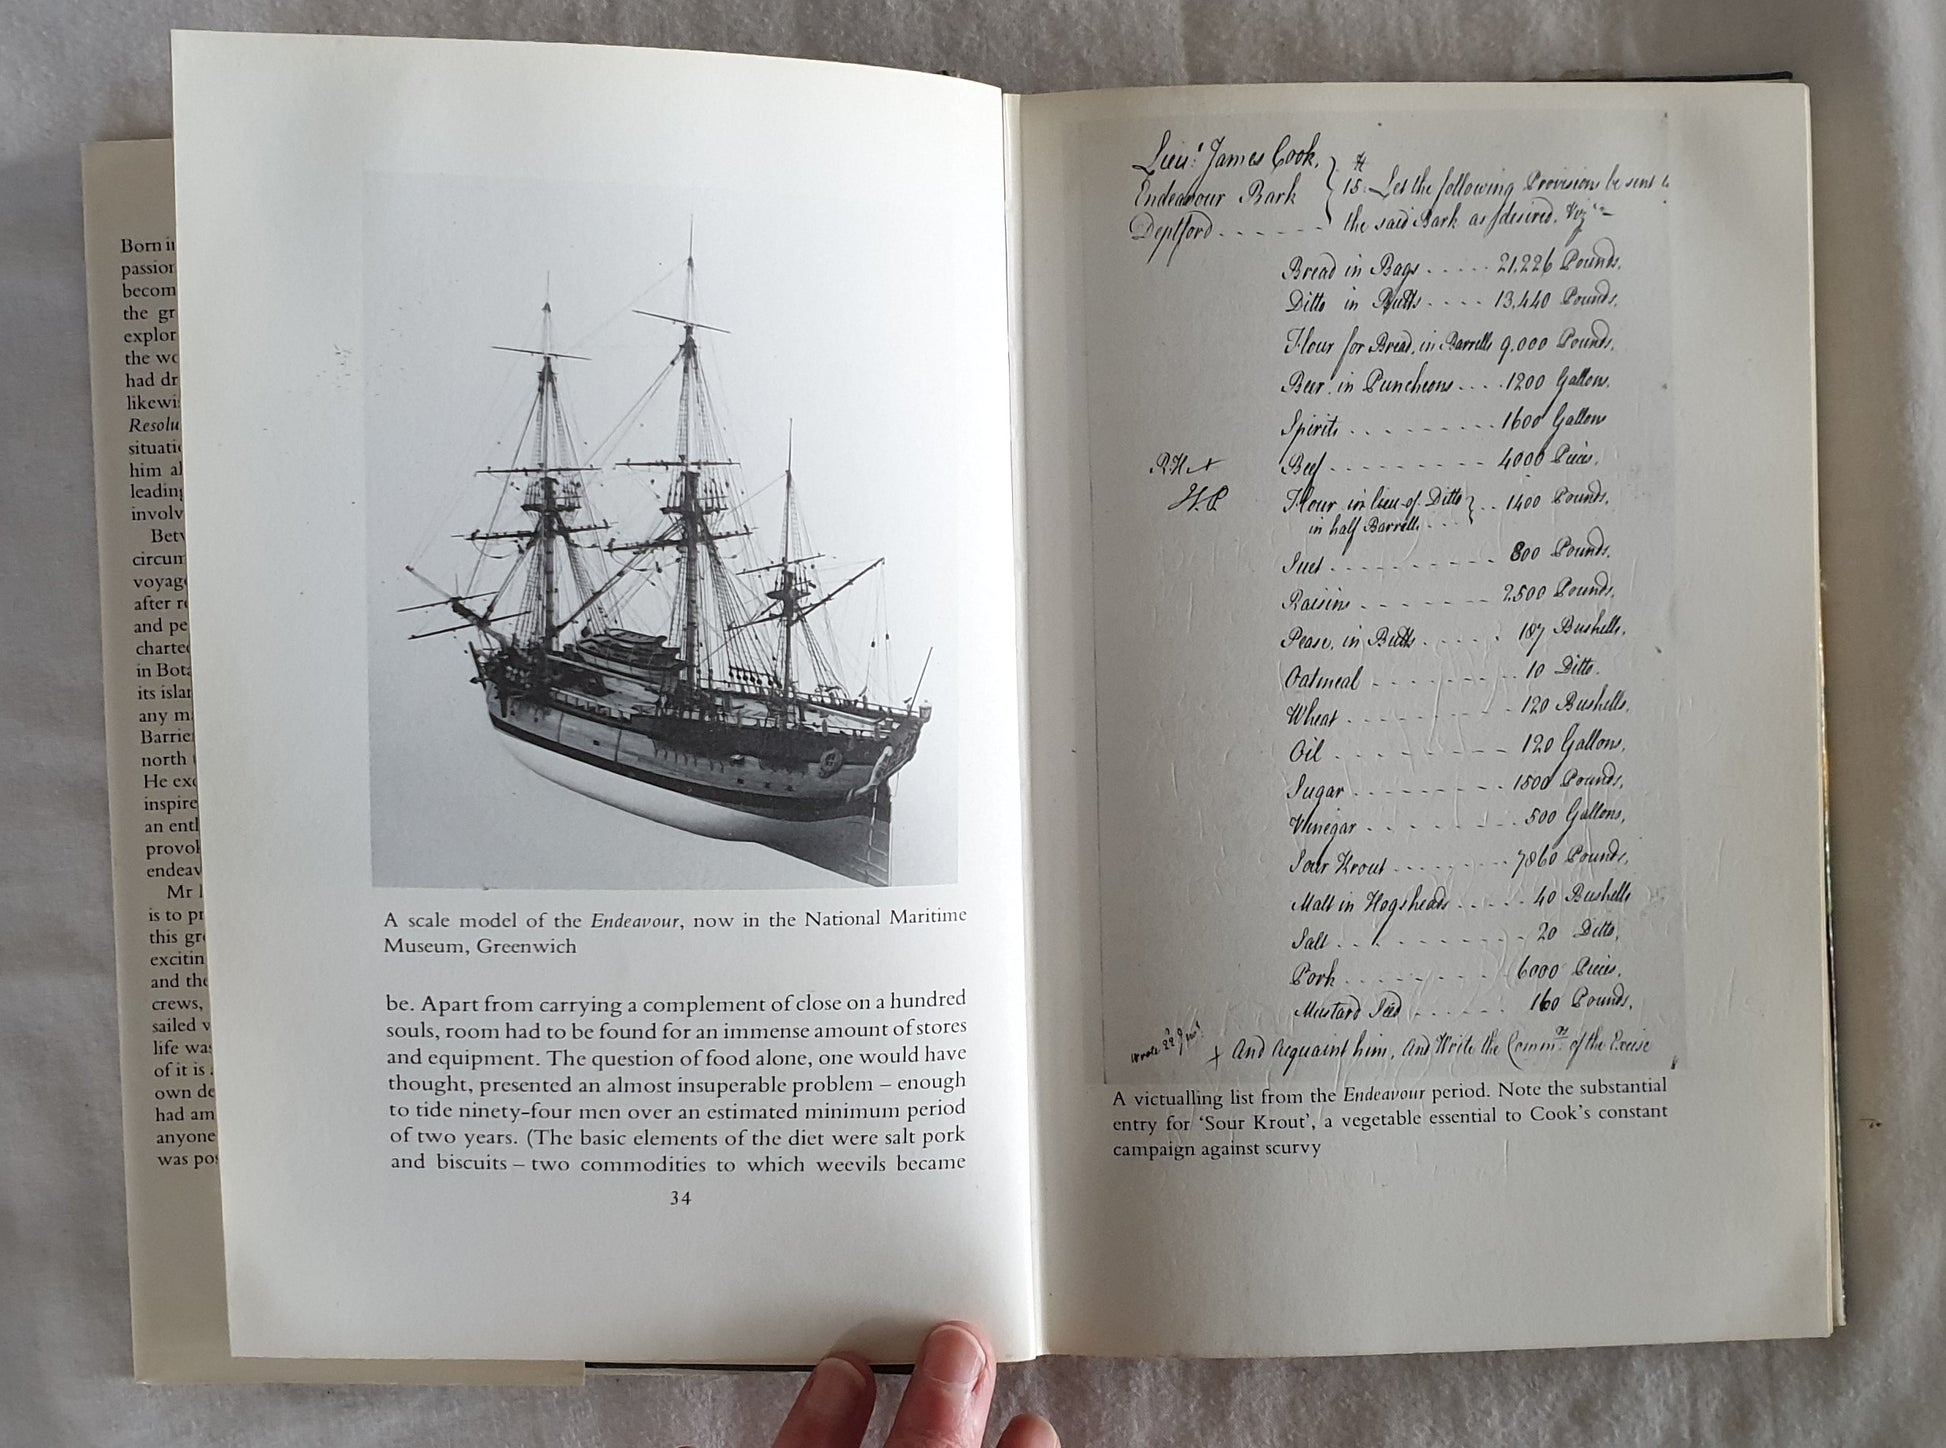 Born i
passion
becom
the gr
explor
the wo
had dr
likewi
Resolu
situati
him al
leading
involv
Betw
circum
voyag
after re
and pe
charted
in Bota
its islan
any m
Barrie
north
He exc
inspire
an entl
provok
endeav
Mr
is to pr
this gr
excitin
and the
crews,
sailed v
life was
of it is
own de
had am
anyone
was pos
A scale model of the Endeavour, now in the National Maritime
Museum, Greenwich
be. Apart from carrying a complement of close on a hundred
souls, room had to be found for an immense amount of stores
and equipment. The question of food alone, one would have
thought, presented an almost insuperable problem – enough
to tide ninety-four men over an estimated minimum period
of two years. (The basic elements of the diet were salt pork
and biscuits – two commodities to which weevils became
34
Lieut. James Cook,
Endeavour Bark
Deptford
15. Let the following Provisions be sent to
the said Bark as desired. Viz.
Bread in Bags ..... 21,226 Pounds.
Ditto in Butts .... 13,440 Pounds.
Flour for Bread, in Barrells 9,000 Pounds.
Beer, in Puncheons .... 1200 Gallons.
Spirits ......... 1600 Gallons
Beef ......... 4000 Pieces.
Flour in lieu of Ditto
in half Barrells ... 1400 Pounds.
Suet .......... 800 Pounds.
Raisins ....... 2,500 Pounds.
Pease, in Butts ..... 187 Bushells.
Oatmeal ........ 10 Ditto.
Wheat ......... 120 Bushells.
Oil .......... 120 Gallons.
Sugar ......... 1500 Pounds.
Vinegar ........ 500 Gallons.
Sour Krout ....... 7860 Pounds.
Malt in Hogsheads ..... 40 Bushells
Salt ......... 20 Ditto.
Pork ........ 6000 Pieces.
Mustard Seed ...... 160 Pounds.
+ And Acquaint him, And Write the Commrs. of the Excise
A victualling list from the Endeavour period. Note the substantial
entry for ‘Sour Krout’, a vegetable essential to Cook’s constant
campaign against scurvy